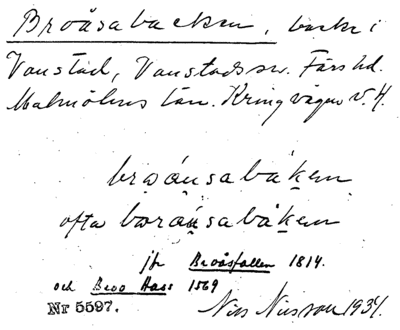 Broåsabacken, backe i
Vanstad, Vanstads sn. Färs hd.
Malmöhus län. Kring vägen V. H.
broánsabákem
ofta boránsabákem
jfr Broåsfallen 1814.
och Broo Hass 1569
Nr 5597. Nils Nilsson 1934.